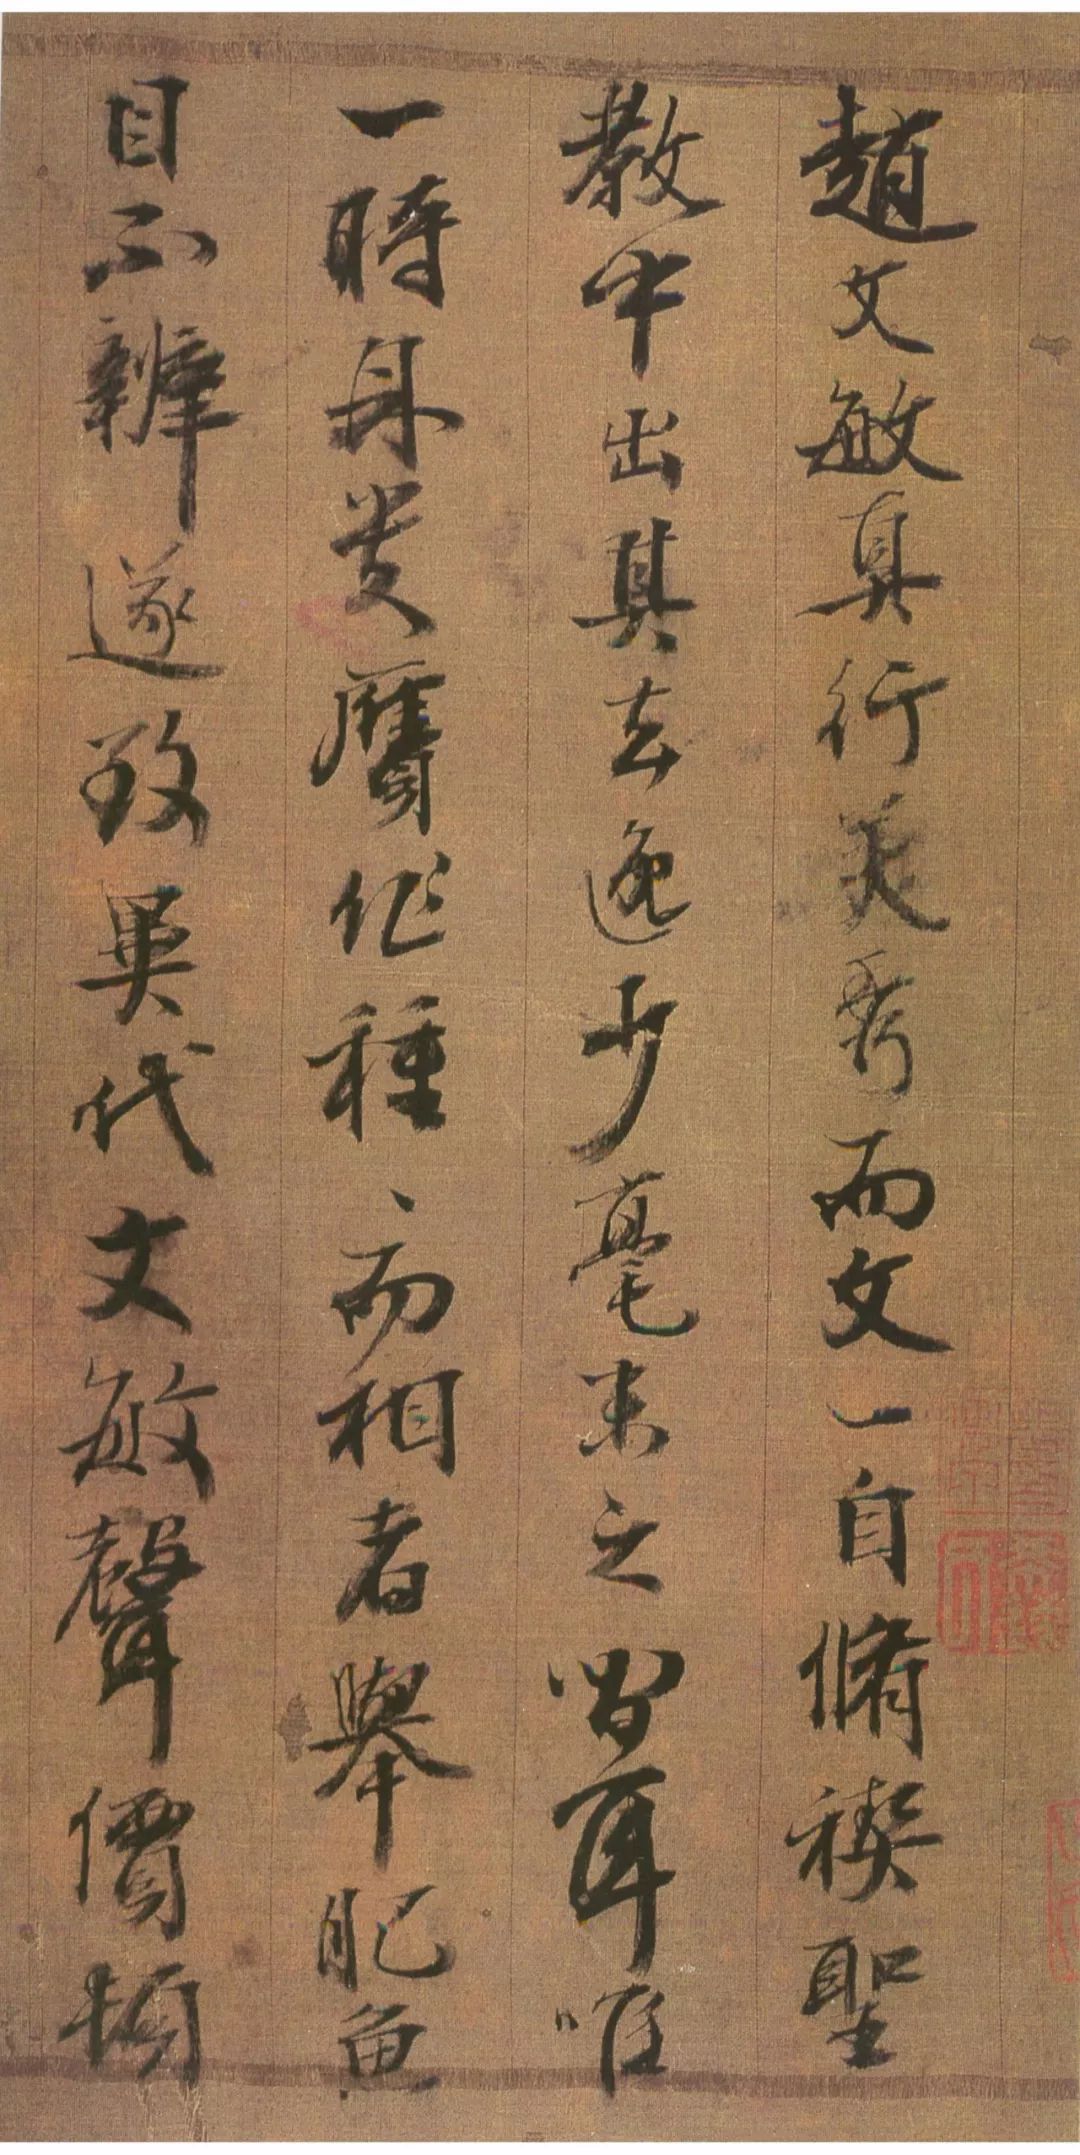 趙文敏真行美秀而文一自脩禊聖
教中出其去逸少毫末之間耳唯
一時身貴贋作種、而相者舉肥魚
目不辨遂致異代文敏聲價頓